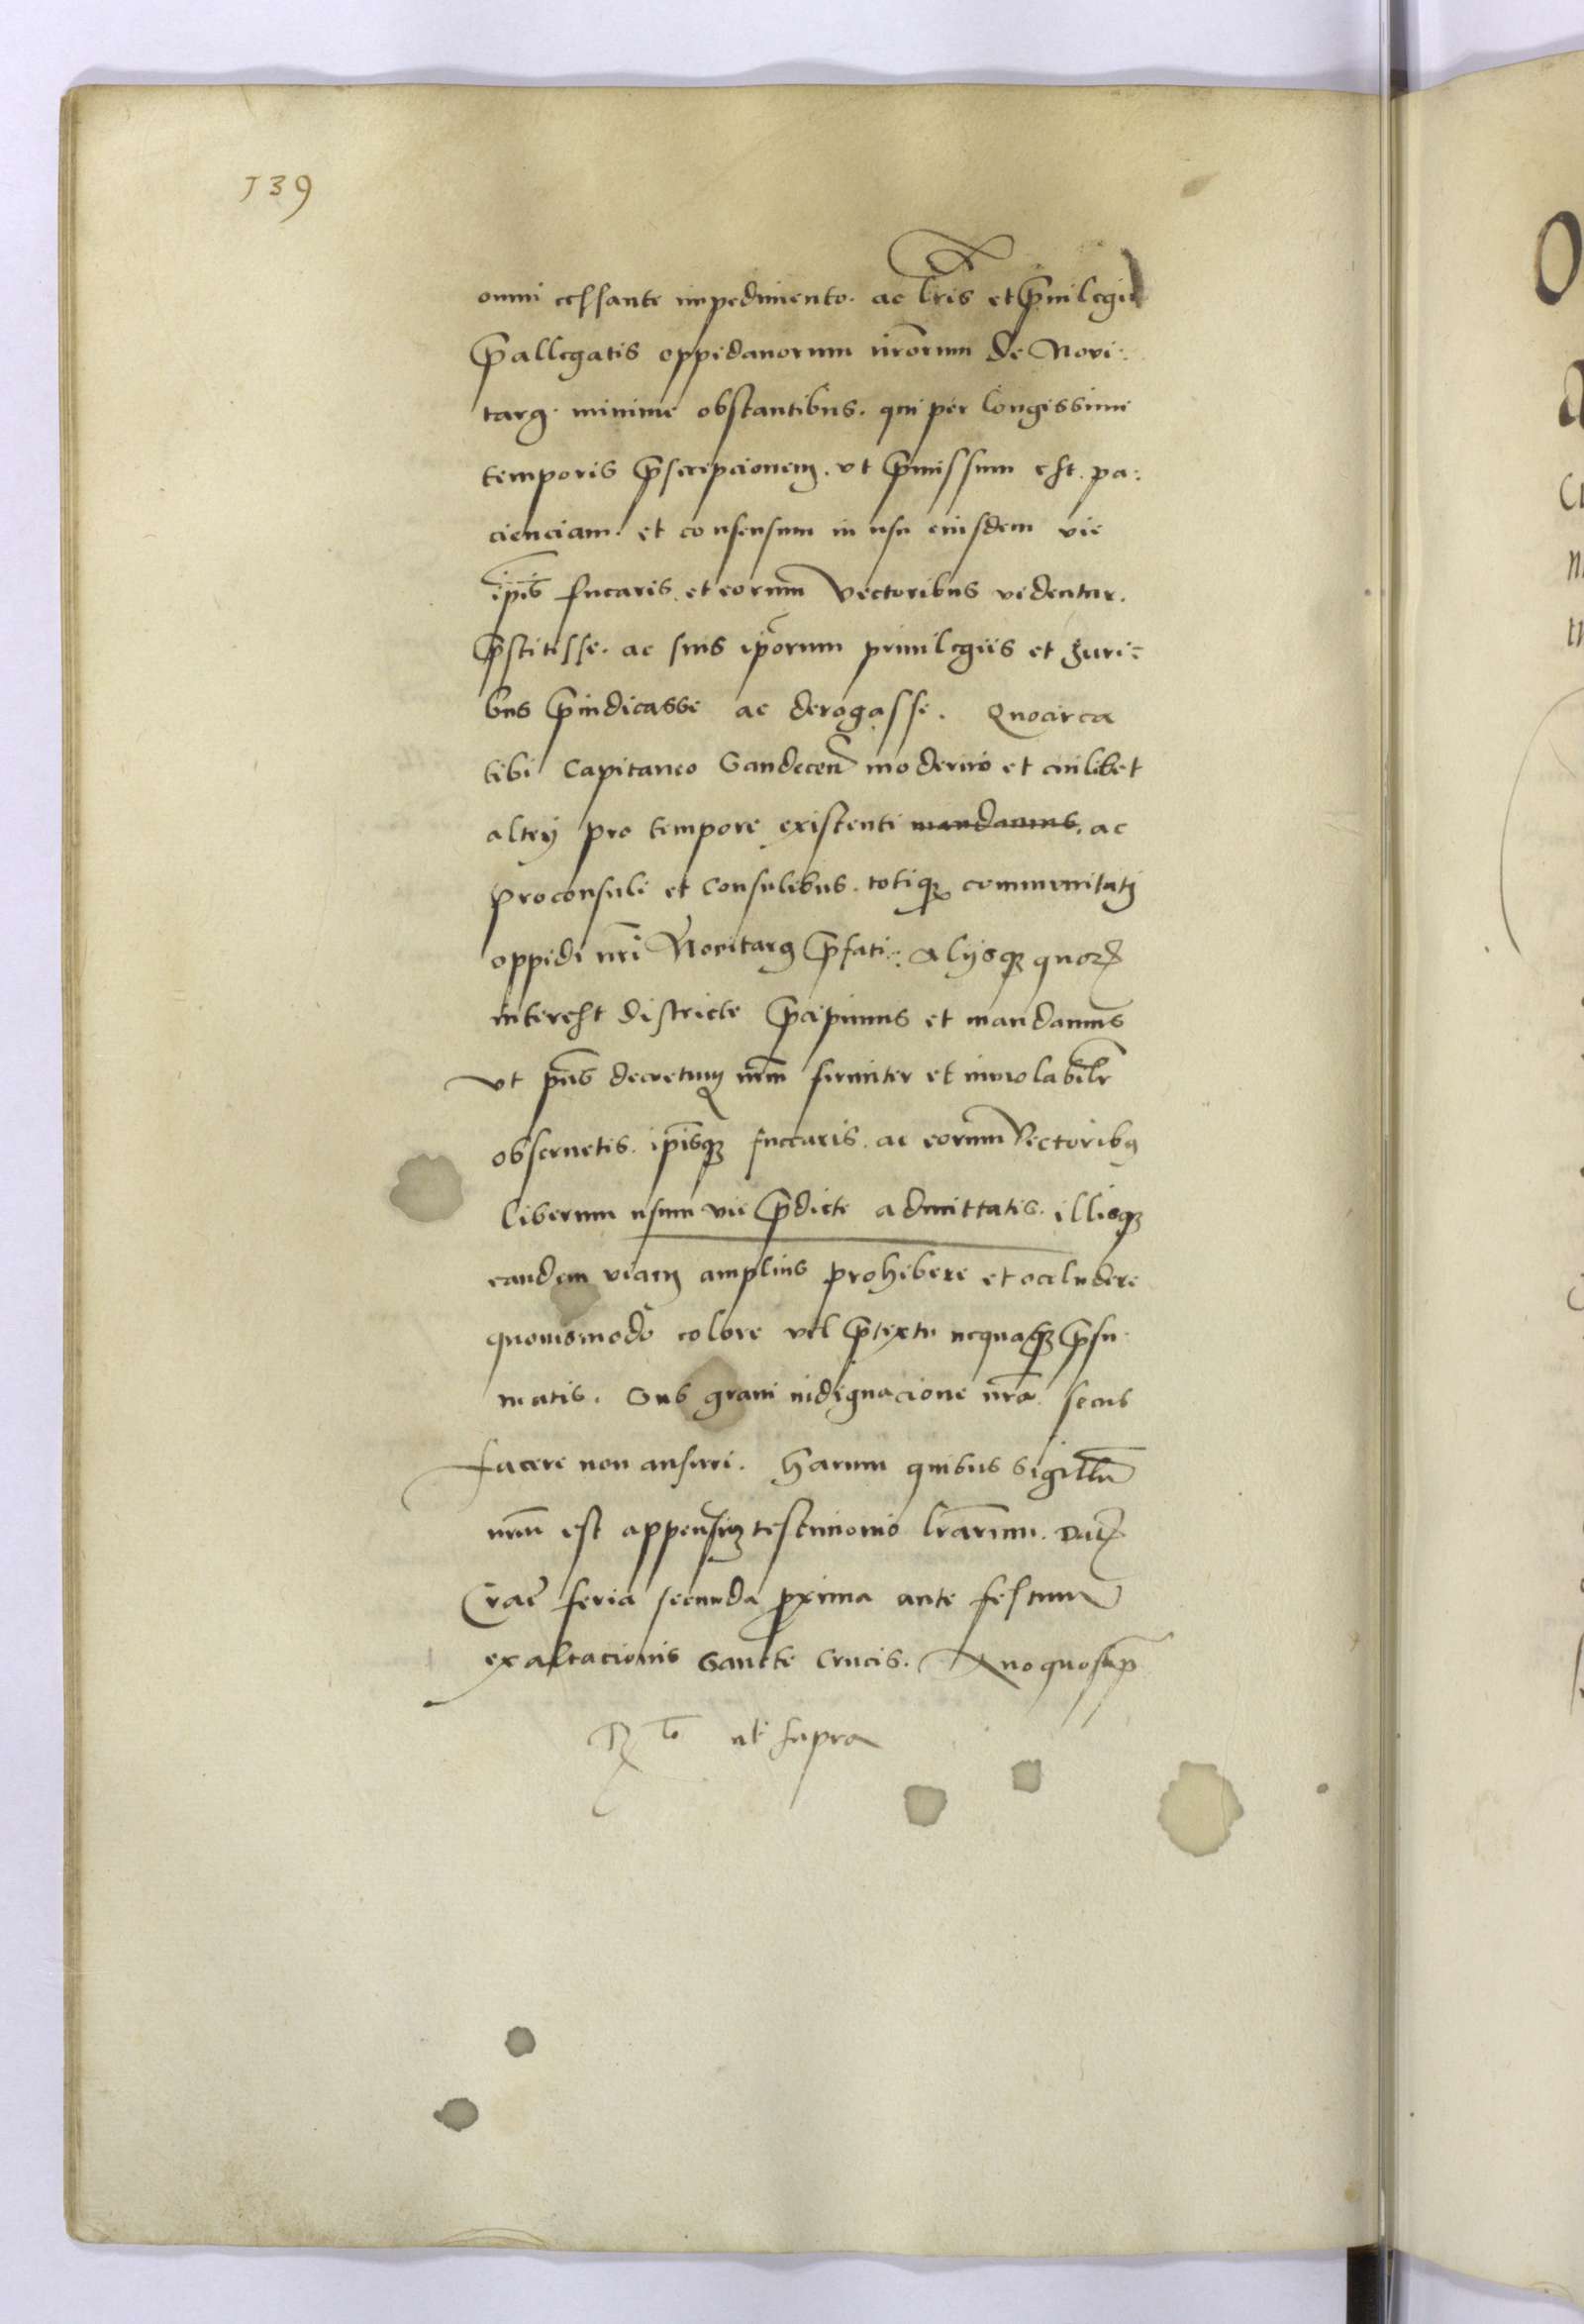 139
omni cessante impedimento. ac lr̃is et p̃uilegi
p̃allegatis oppidanorum nr̃orum de Novi:
targ. minime obstantibus. qui per longissimi
temporis p̃scripcionem. vt p̃missum est. pa:
cienciam. et consensum in usu eiusdem vie
ip̃is fucaris. et eorum vectoribus videntur.
p̃stitisse. ac suis ip̃orum priuilegiis et Juri=
bus p̃iudicasse ac derogasse. Quocirca
tibi Capitaneo Sandecen̄ moderno et cuilibet
altery pro tempore existenti mandamus. ac
proconsuli et Consulibus. totiqꝫ communitatj
oppidi nr̃i Novitarg p̃fati: Alijsqꝫ quorꝝ
interest districte p̃cipimus et mandamus
vt p̃ns decretum nr̃m firmiter et inuiolabilr̃
obseruetis. ip̃isqꝫ fuccaris. ac eorum Vectoribꝰ
liberum usum vie p̃dicte admittatis. illisqꝫ
eandem viam amplius prohibere et occludere
quouismodo colore vel p̃textu nequaqꝫ p̃su
matis. Sub graui indignacione nr̃a. secus
facere non ausuri. Harum quibus Sigillū
nr̃m est appensum testimonio lr̃arum. Datꝝ
Crac̄ feria secunda proxima ante festum
exaltacionis Sancte Crucis. Anno quo sup̃
R̃to ut supra